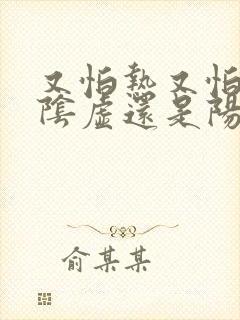 又怕熱又怕
陰虛還是陽
俞某某